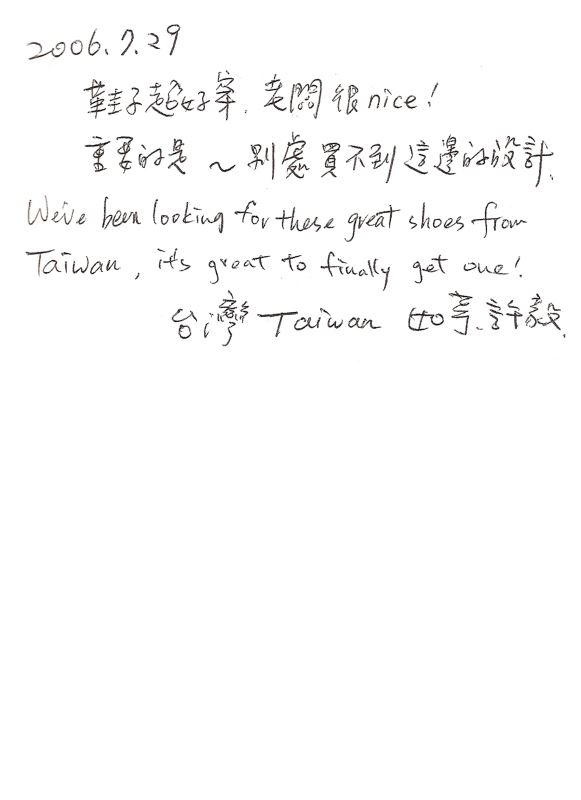 2006.7.29
鞋子超好穿.老闆很nice!
重要的是~別處買不到這邊的設計.
We've been looking for these great shoes from
Taiwan, it's great to finally get one!
台灣 Taiwan 許毅.